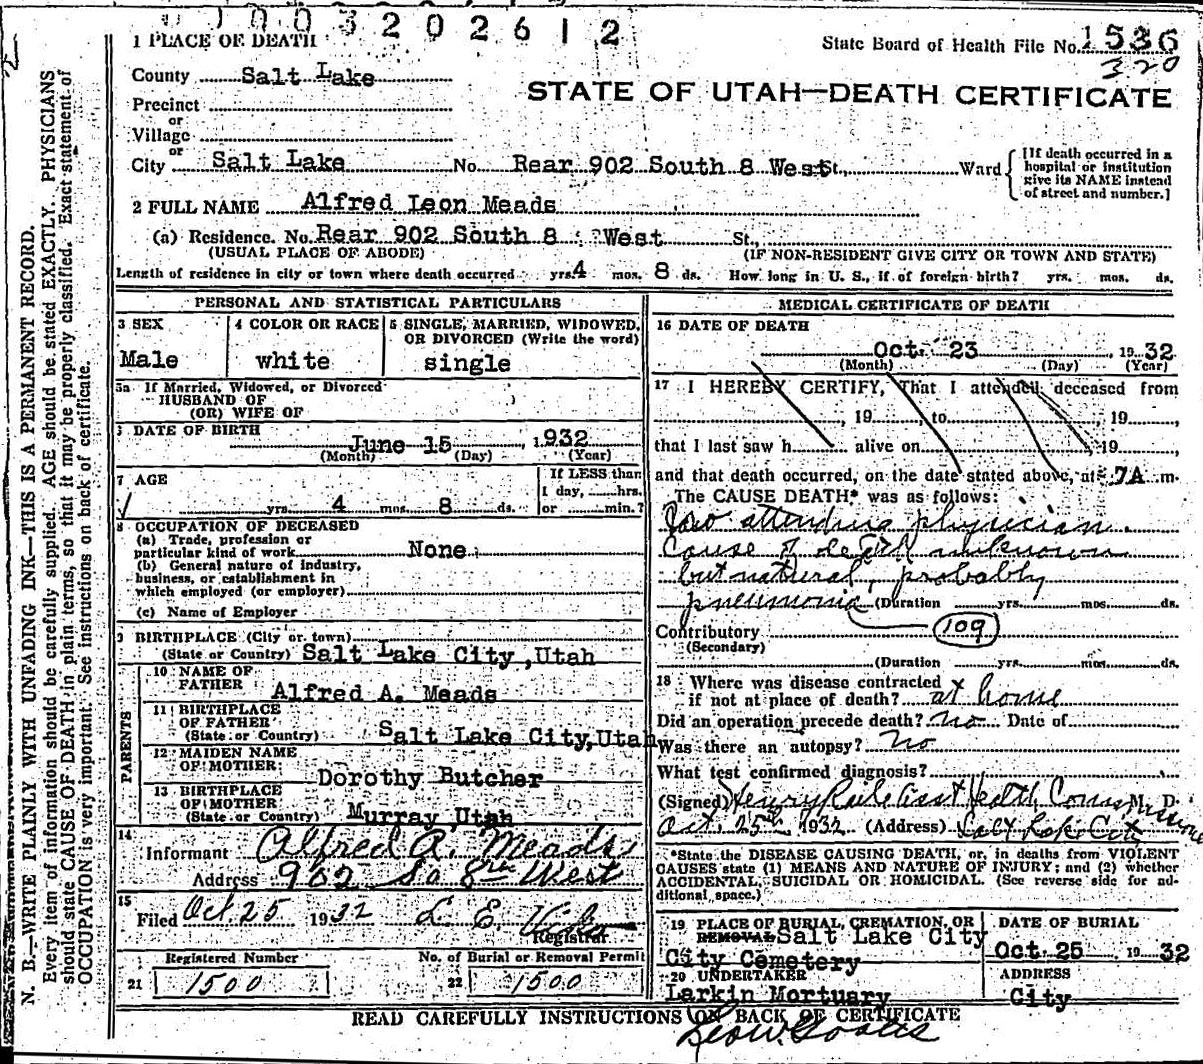 1003202612
1 PLACE OF DEATH
State Board of Health File No. 1536
320
County Salt Lake
STATE OF UTAH—DEATH CERTIFICATE
Precinct
or
Village
or
City Salt Lake No. Rear 902 South 8 West St., Ward
[If death occurred in a
hospital or institution
give its NAME instead
of street and number.]
2 FULL NAME Alfred Leon Meads
(a) Residence. No. Rear 902 South 8 West St.,
(USUAL PLACE OF ABODE) (IF NON-RESIDENT GIVE CITY OR TOWN AND STATE)
Length of residence in city or town where death occurred yrs. 4 mos. 8 ds. How long in U. S., if of foreign birth? yrs. mos. ds.
PERSONAL AND STATISTICAL PARTICULARS
3 SEX
Male
4 COLOR OR RACE
white
5 SINGLE, MARRIED, WIDOWED,
OR DIVORCED (Write the word)
single
5a If Married, Widowed, or Divorced
HUSBAND OF
(OR) WIFE OF
DATE OF BIRTH
June 15 1932
(Month) (Day) (Year)
7 AGE
yrs. 4 mos. 8 ds.
If LESS than
1 day, hrs.
or min.?
8 OCCUPATION OF DECEASED
(a) Trade, profession or
particular kind of work None
(b) General nature of industry,
business, or establishment in
which employed (or employer)
(c) Name of Employer
9 BIRTHPLACE (City or town)
(State or Country) Salt Lake City, Utah
PARENTS
10 NAME OF
FATHER Alfred A. Meads
11 BIRTHPLACE
OF FATHER
(State or Country) Salt Lake City, Utah
12 MAIDEN NAME
OF MOTHER Dorothy Butcher
13 BIRTHPLACE
OF MOTHER
(State or Country) Murray Utah
14
Informant Alfred A. Meads
Address 902 So 8th West
15
Filed Oct. 25 1932 L. E.
Registrar
Registered Number
21 1500
No. of Burial or Removal Permit
22 1500
MEDICAL CERTIFICATE OF DEATH
16 DATE OF DEATH
Oct. 23, 1932
(Month) (Day) (Year)
17 I HEREBY CERTIFY, That I attended deceased from
, 19 , to , 19 ,
that I last saw h alive on 19 ,
and that death occurred, on the date stated above, at 7A m.
The CAUSE DEATH* was as follows:
attending physician
Cause of death unknown
but natural, probably
pneumonia (Duration yrs. mos. ds.
Contributory 109
(Secondary)
(Duration yrs. mos. ds.
18 Where was disease contracted
if not at place of death? at home
Did an operation precede death? no Date of
Was there an autopsy? No
What test confirmed diagnosis?
(Signed) Henry Asst Health Commissione M. D.
Oct. 25th 1932 (Address) Salt Lake City
*State the DISEASE CAUSING DEATH, or, in deaths from VIOLENT
CAUSES state (1) MEANS AND NATURE OF INJURY; and (2) whether
ACCIDENTAL, SUICIDAL OR HOMICIDAL. (See reverse side for ad-
ditional space.)
19 PLACE OF BURIAL, CREMATION, OR
REMOVAL Salt Lake City
City Cemetery
DATE OF BURIAL
Oct. 25 1932
20 UNDERTAKER
Larkin Mortuary
ADDRESS
City
READ CAREFULLY INSTRUCTIONS ON BACK OF CERTIFICATE
N. B.—WRITE PLAINLY WITH UNFADING INK—THIS IS A PERMANENT RECORD.
Every item of information should be carefully supplied. AGE should be stated EXACTLY. PHYSICIANS
should state CAUSE OF DEATH in plain terms, so that it may be properly classified. Exact statement of
OCCUPATION is very important. See instructions on back of certificate.